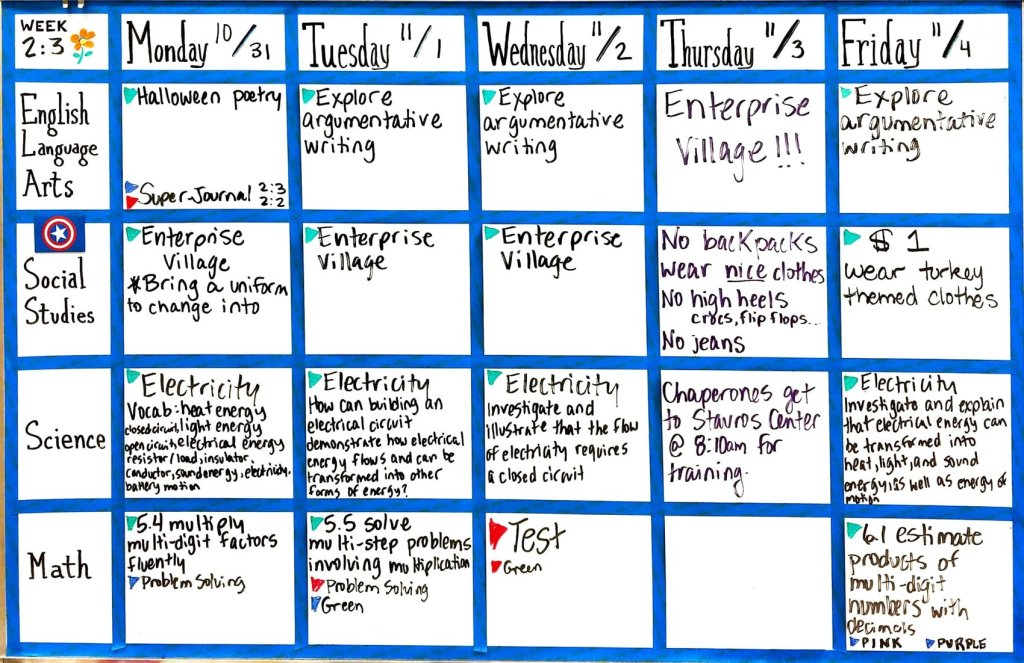 WEEK
2:3
Monday 10/31
Tuesday 11/1
Wednesday 11/2
Thursday 11/3
Friday 11/4
English
Language
Arts
Halloween poetry
Super Journal 2:3
2:2
Explore
argumentative
writing
Explore
argumentative
writing
Enterprise
Village!!!
Explore
argumentative
writing
Social
Studies
Enterprise
Village
*Bring a uniform
to change into
Enterprise
Village
Enterprise
Village
No backpacks
wear nice clothes
No high heels
crocs, flip flops...
No jeans
$1
wear turkey
themed clothes
Science
Electricity
Vocab: heat energy
closed circuit, light energy
open circuit, electrical energy
resistor/load, insulator,
conductor, sound energy, electricity,
battery motion
Electricity
How can building an
electrical circuit
demonstrate how electrical
energy flows and can be
transformed into other
forms of energy?
Electricity
Investigate and
illustrate that the flow
of electricity requires
a closed circuit
Chaperones get
to Stavros Center
@ 8:10am for
training.
Electricity
Investigate and explain
that electrical energy can
be transformed into
heat, light, and sound
energy, as well as energy of
motion
Math
5.4 multiply
multi-digit factors
fluently
Problem Solving
5.5 solve
multi-step problems
involving multiplication
Problem Solving
Green
Test
Green
6.1 estimate
products of
multi-digit
numbers with
decimals
PINK PURPLE